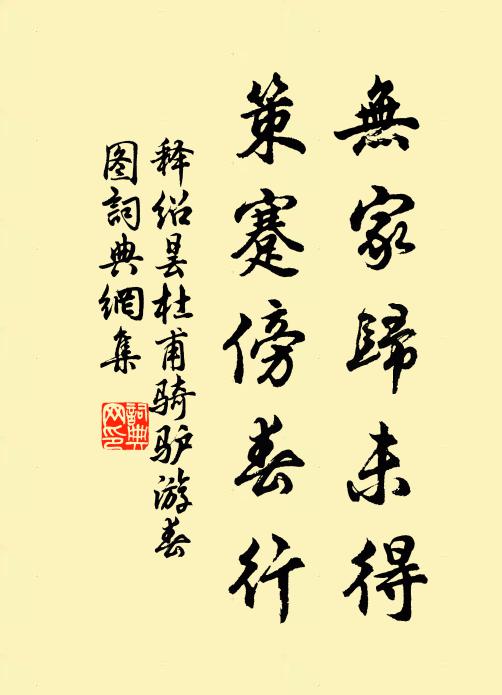 無家歸未得
策蹇傍春行
释绍昙杜甫骑驴游春
图詞典網集
詞典
网印